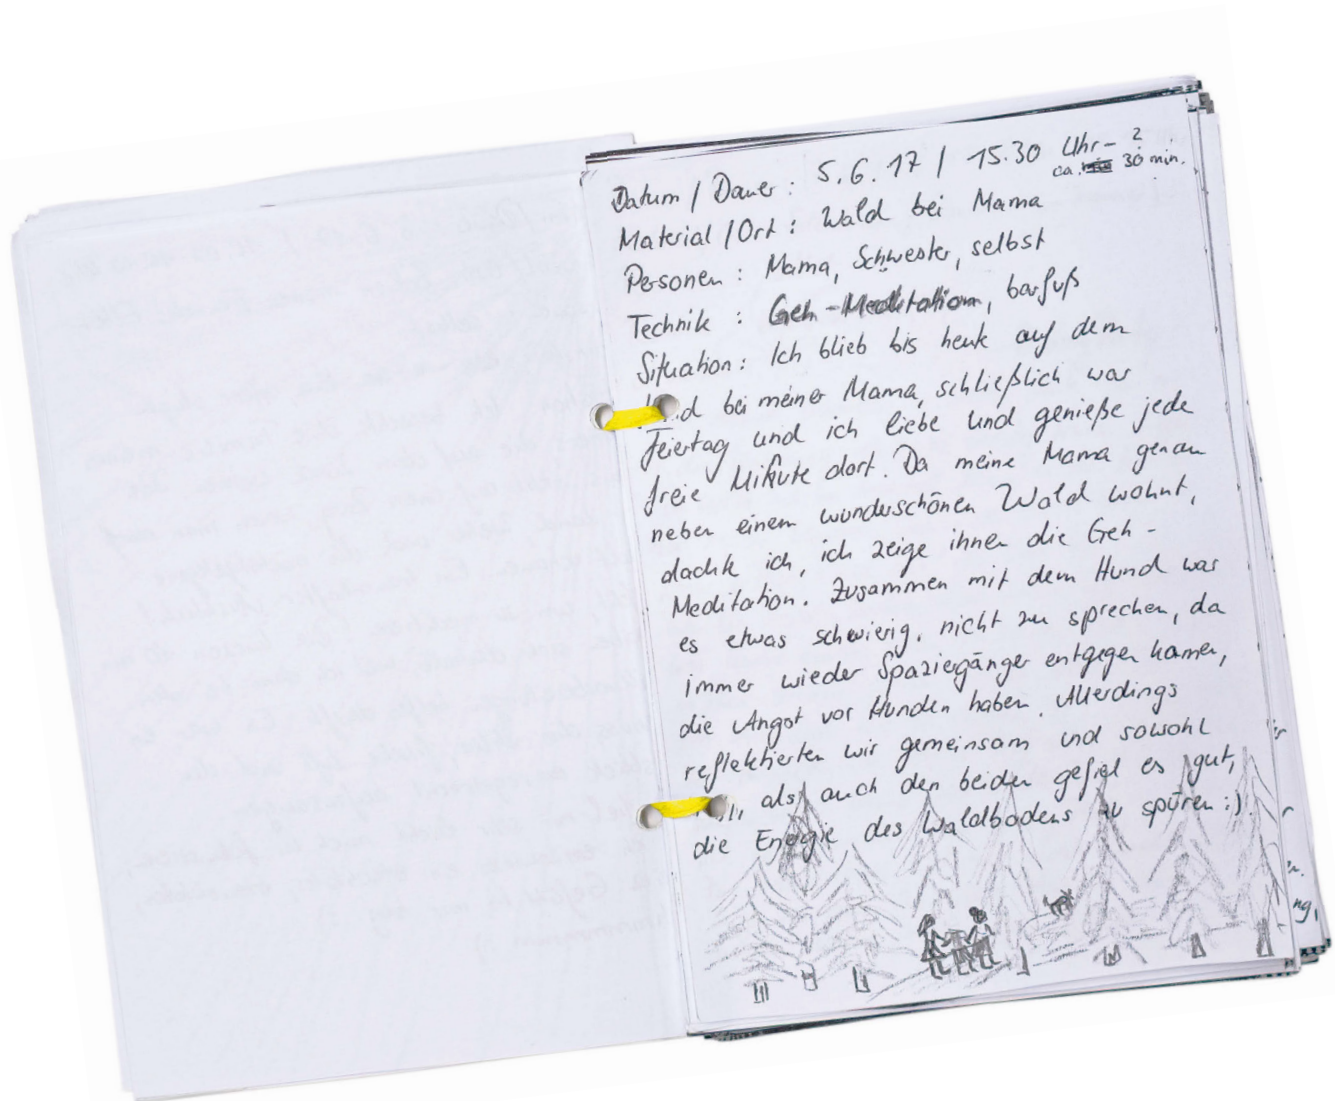 Datum / Dauer : 5.6.17 / 15.30 Uhr - ?
ca. 30 min.
Material / Ort : Wald bei Mama
Personen : Mama, Schwester, selbst
Technik : Geh - Meditation, barfuß
Situation : Ich blieb bis heute auf dem
bei meiner Mama, schließlich war
Feiertag und ich liebe und genieße jede
freie Minute dort. Da meine Mama genau
neben einem wunderschönen Wald wohnt,
dachte ich, ich zeige ihnen die Geh -
Meditation. Zusammen mit dem Hund war
es etwas schwierig, nicht zu sprechen, da
immer wieder Spaziergänger entgegen kamen,
die Angst vor Hunden haben. Allerdings
reflektierten wir gemeinsam und sowohl
als auch den beiden gefiel es gut,
die Energie des Waldbodens zu spüren :)
ng,